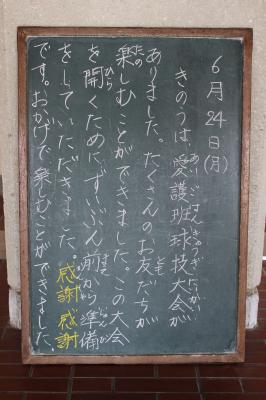 6月24日(月)
きのうは、愛護班球技大会が
ありました。たくさんのお友だちが
楽しむことができました。この大会
を開くために、ずいぶん前から準備
をしていただきました。感謝感謝
です。おかげで楽しむことができました。